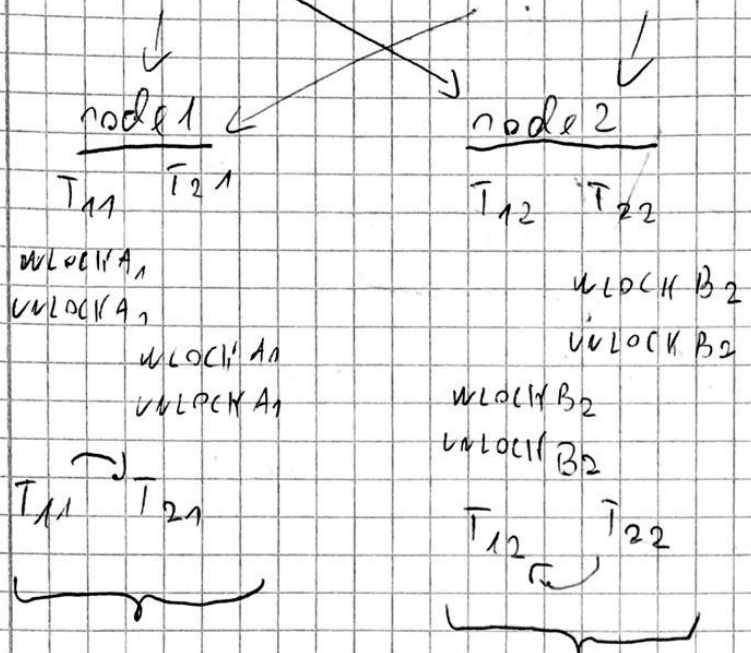 node1
T11 T21
WLOCK A1
UNLOCK A1
WLOCK A1
UNLOCK A1
T11 T21
node2
T12 T22
WLOCK B2
UNLOCK B2
WLOCK B2
UNLOCK B2
T12 T22